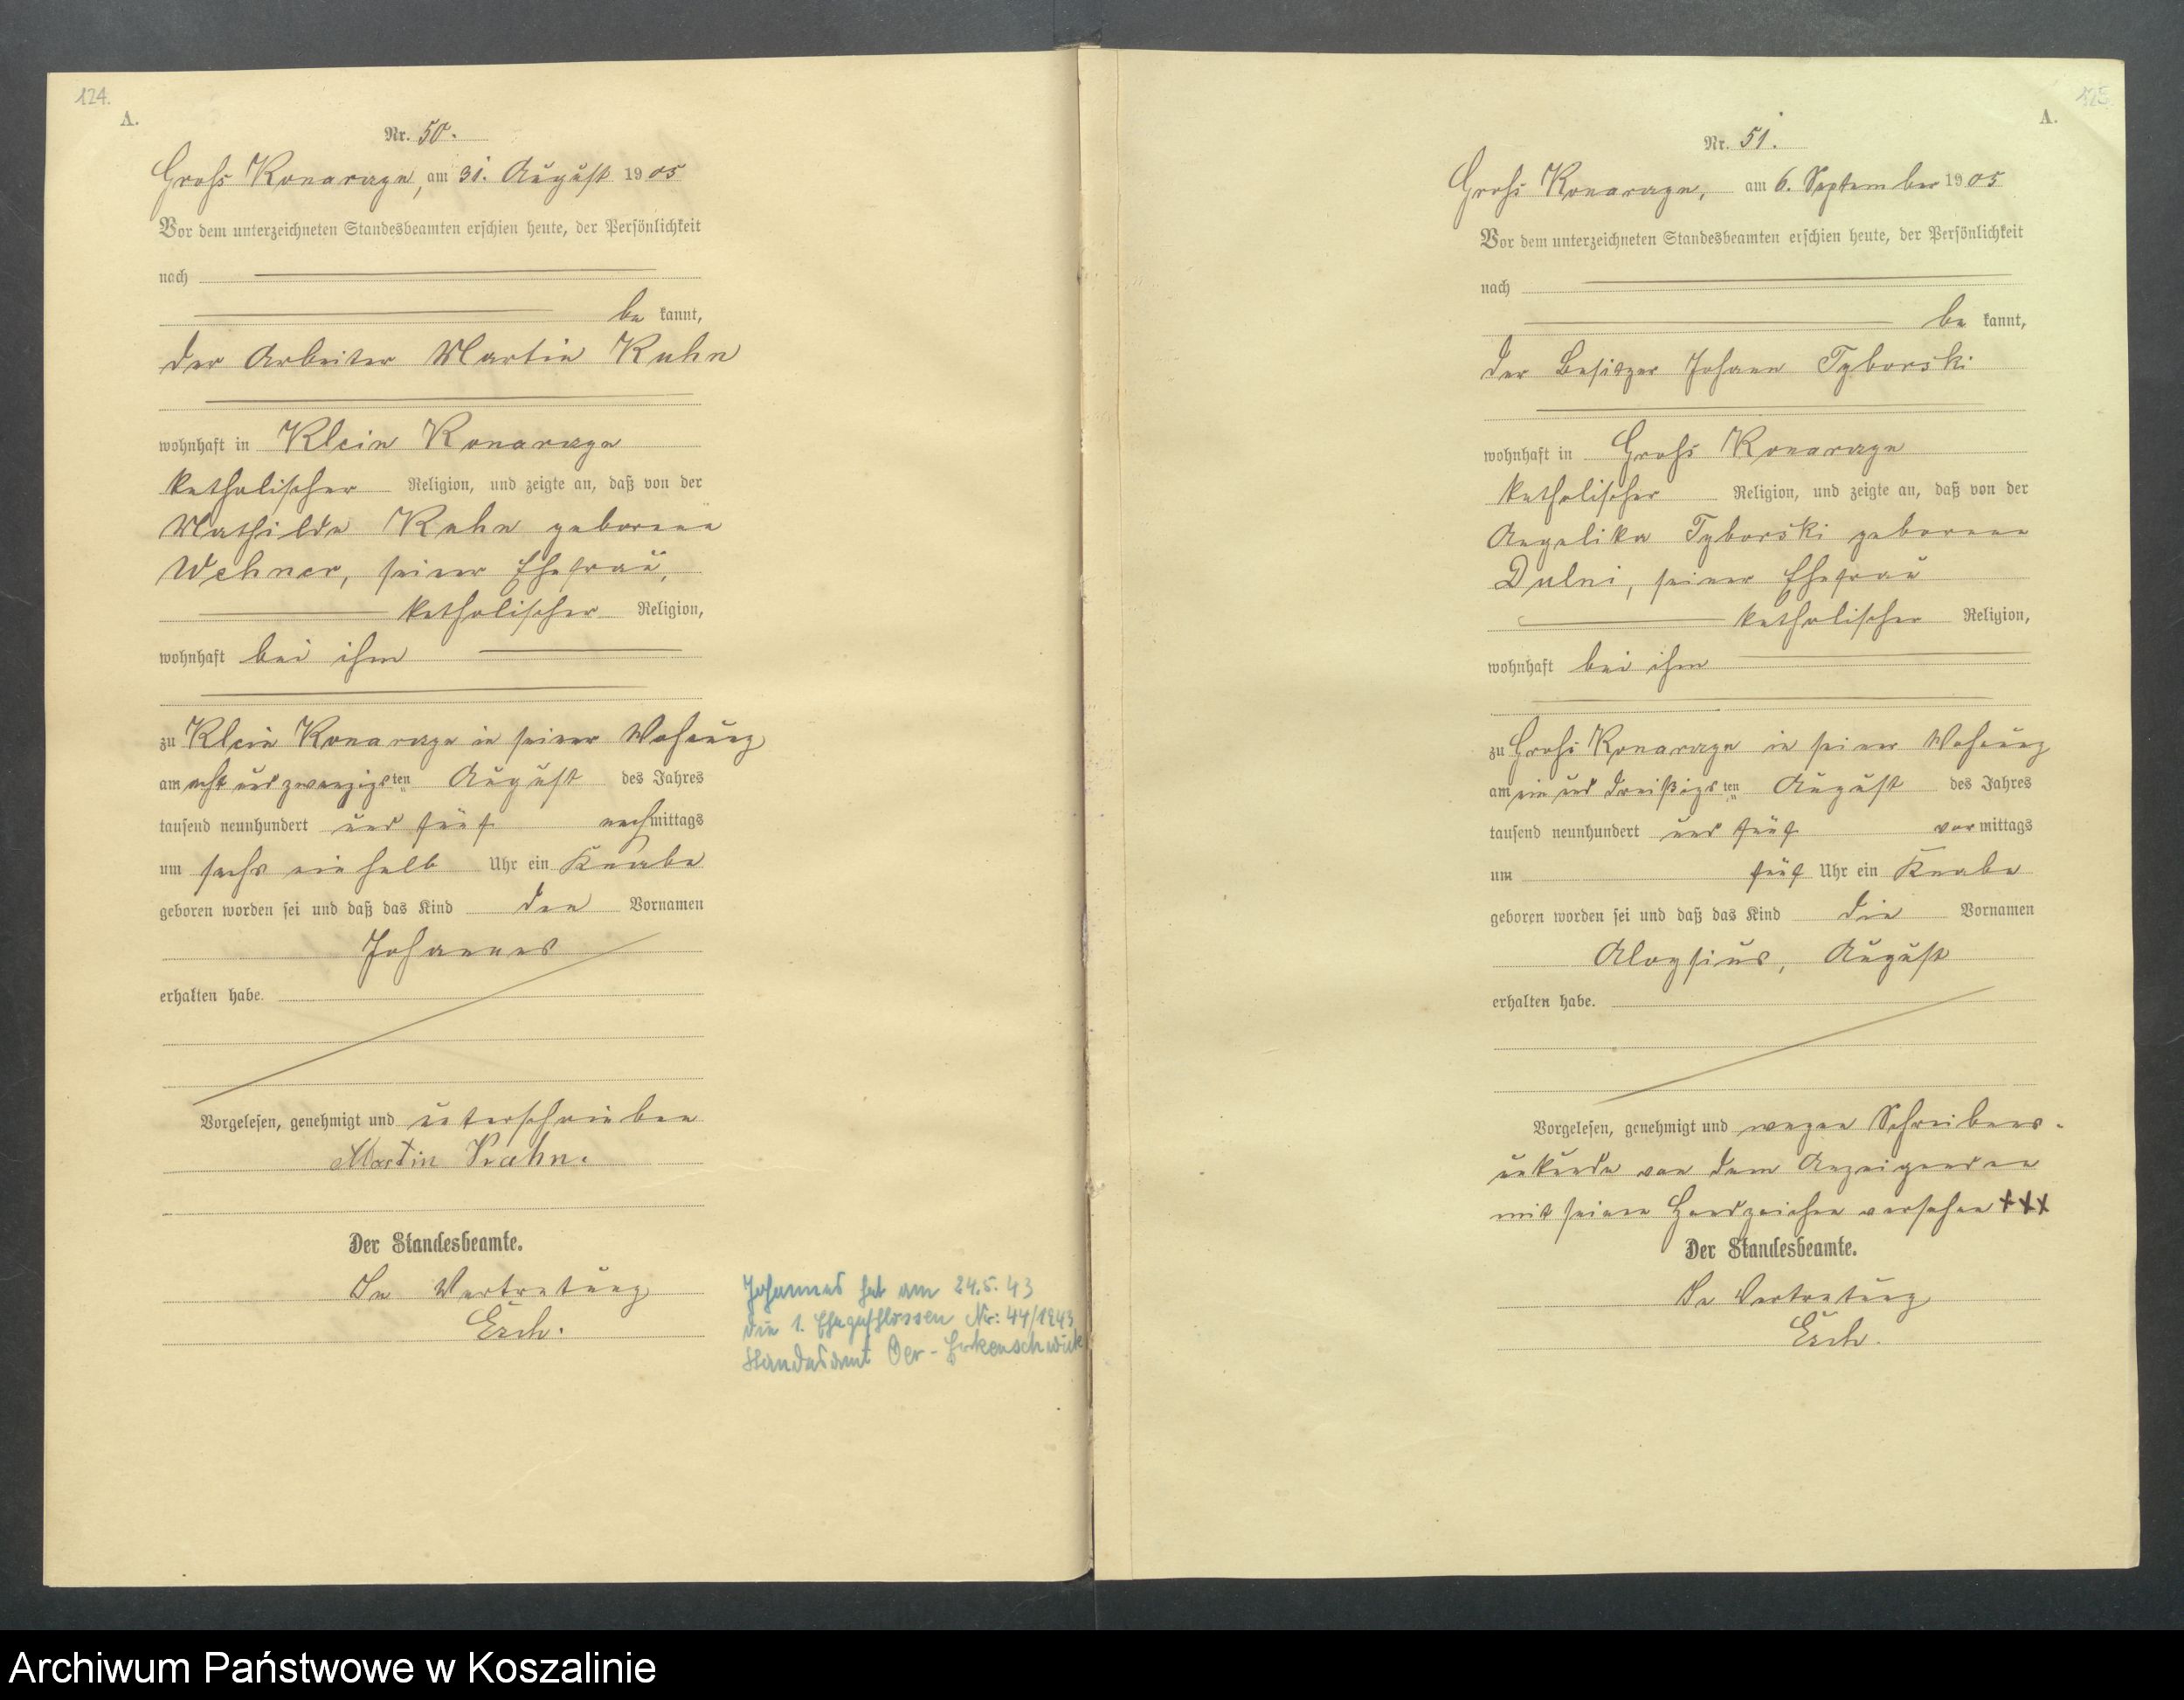 124.
A.
Nr. 50.
Gross Konarczyn, am 31. August 1905
Vor dem unterzeichneten Standesbeamten erschien heute, der Persönlichkeit
nach
be kannt,
der Arbeiter Martin Kuhn
wohnhaft in Klein Konarczyn
katholischer Religion, und zeigte an, daß von der
Mathilde Kuhn geborene
Wehner, seiner Ehefrau,
katholischer Religion,
wohnhaft bei ihm
zu Klein Konarczyn in seiner Wohnung
am acht und zwanzigsten August des Jahres
tausend neunhundert und fünf nachmittags
um sechs ein halb Uhr ein Knabe
geboren worden sei und daß das Kind den Vornamen
Johannes
erhalten habe.
Vorgelesen, genehmigt und unterschrieben
Martin Kuhn.
Der Standesbeamte.
In Vertretung
Esch.
Johannes hat am 24.5.43
die 1. Ehe geschlossen Nr: 44/1943
Standesamt Oer-Erkenschwick
125.
A.
Nr. 51.
Gross Konarczyn, am 6. September 1905
Vor dem unterzeichneten Standesbeamten erschien heute, der Persönlichkeit
nach
be kannt,
der Besitzer Johann Tyborski
wohnhaft in Gross Konarczyn
katholischer Religion, und zeigte an, daß von der
Angelika Tyborski geborene
Dulni, seiner Ehefrau
katholischer Religion,
wohnhaft bei ihm
zu Gross Konarczyn in seiner Wohnung
am ein und dreißigsten August des Jahres
tausend neunhundert und fünf vormittags
um fünf Uhr ein Knabe
geboren worden sei und daß das Kind die Vornamen
Aloysius, August
erhalten habe.
Vorgelesen, genehmigt und wegen Schreibens-
unkunde von dem Anzeigenden
mit seinem Handzeichen versehen +++
Der Standesbeamte.
In Vertretung
Esch.
Archiwum Państwowe w Koszalinie